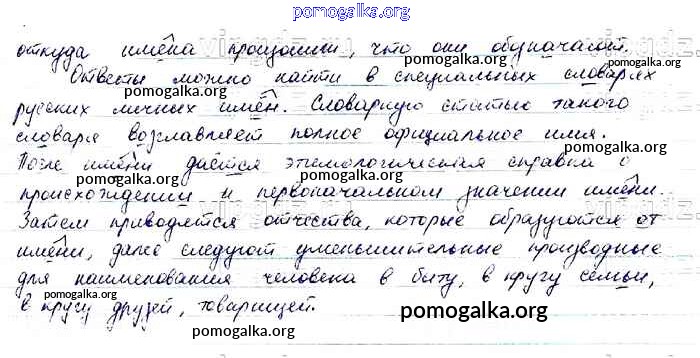 pomogalka.org
откуда имена произошли, что они обозначают.
pomogalka.org
Ответы можно найти в специальных словарях
pomogalka.org
русских личных имён. Словарную статью такого
pomogalka.org
словаря возглавляет полное официальное имя.
pomogalka.org
После имени даётся этимологическая справка о
pomogalka.org
происхождении и первоначальном значении имени.
pomogalka.org
Затем приводятся отчества, которые образуются от
имени, далее следуют уменьшительные производные
pomogalka.org
для наименования человека в быту, в кругу семьи,
pomogalka.org
в кругу друзей, товарищей.
pomogalka.org
pomogalka.org